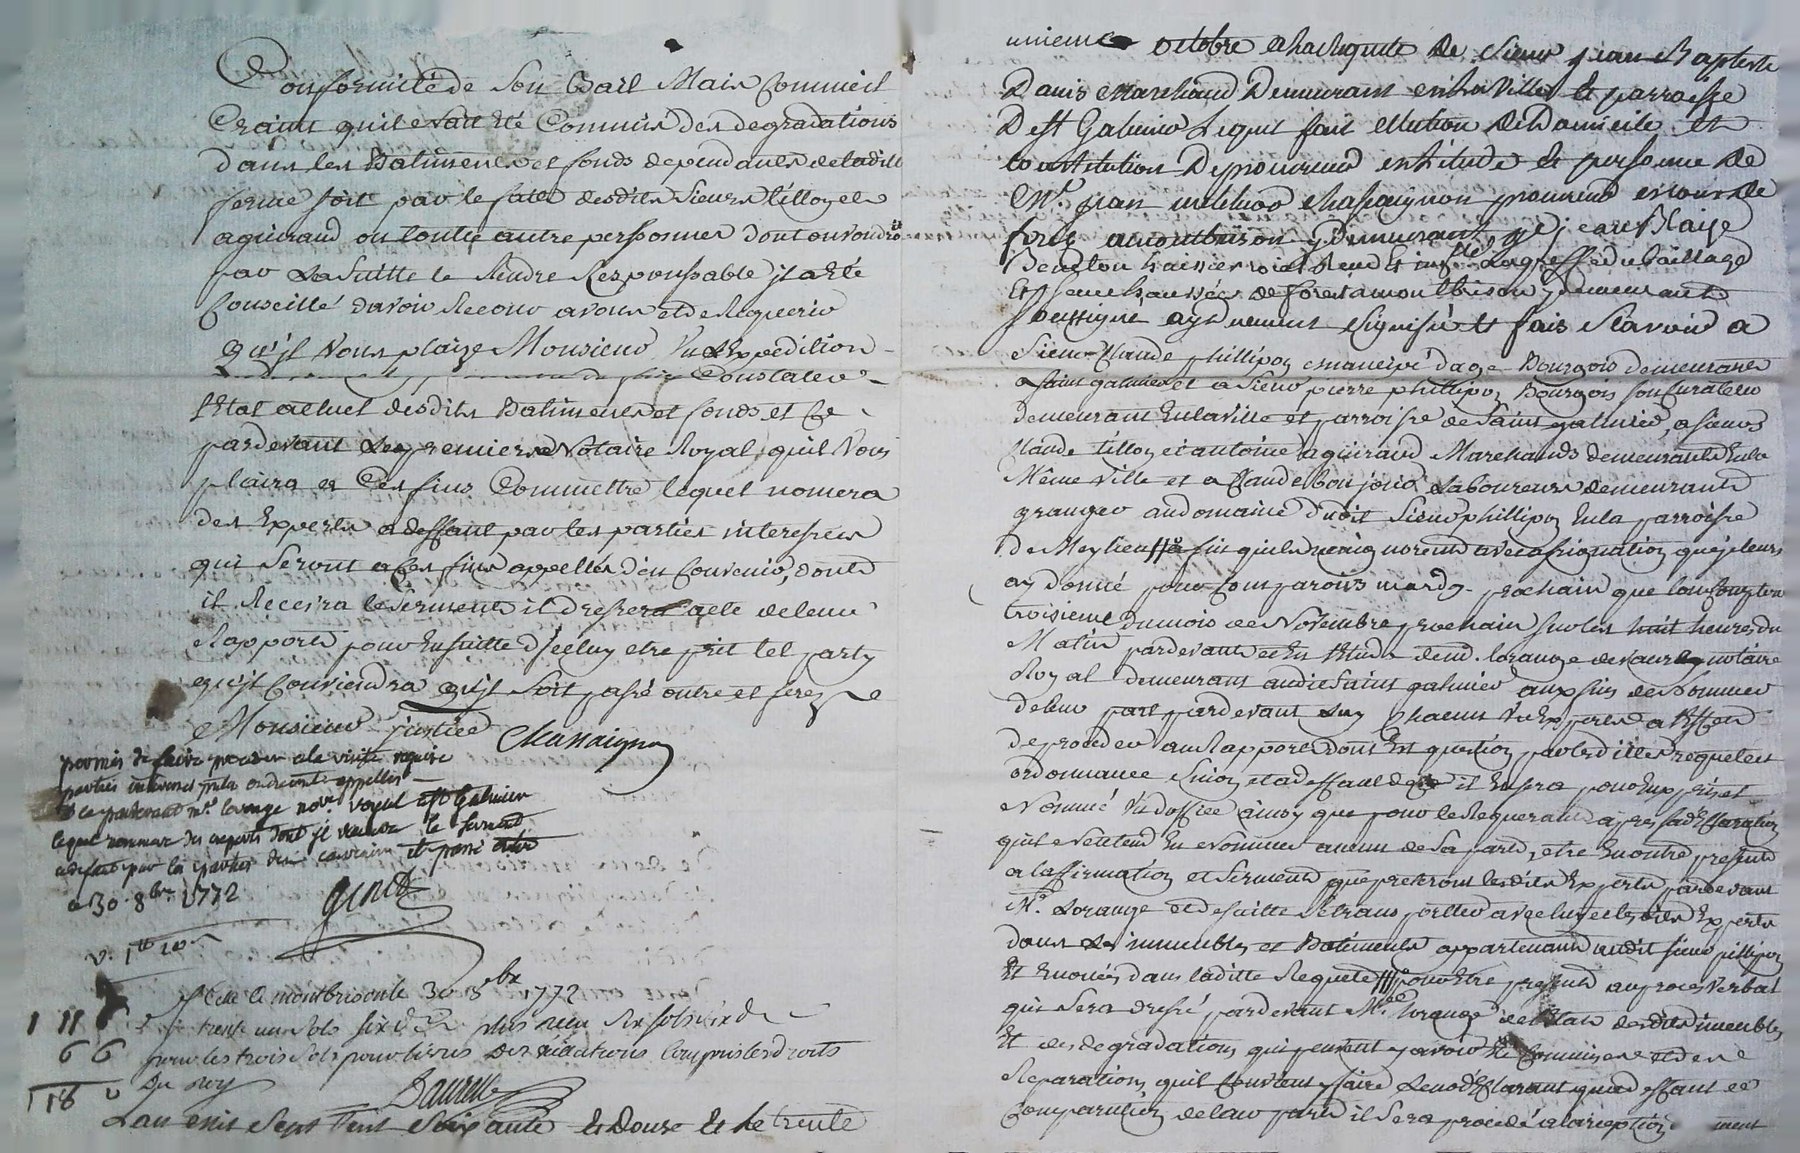 Conformité de Son Bail Mais Comme il
Craint quil evait été Commis des degradations
dans les Batiments et fonds dependants de ladite
ferme soit par le fait desdits Sieurs tilloy et
aguiraud ou toutte autre personnes dont on voudroit
par La Suitte le Rendre Responssable il a été
Conseillé davoir Recour a vous et de Requerir
Qu'il Vous plaize Monsieur Vu Lexpedition
Constater
letat actuel desdits Batiments et fonds et Ce
pardevant Le premier Notaire Royal quil Vous
plaira a Ces fins Commettre lequel nomera
des Experts a deffaut par les parties interessées
qui Seront a Ces fins appellés d'en Convenir, dont
il Recevra le Serment il dressera acte de leur
Rapport pour Ensuitte d'Iceluy etre prit tel party
qu'il Conviendra qu'il Soit passé outre et ferez
Monsieur justice
Chassaignon
permis de faire proceder a la visite requise
parties interessées présentes ou duement appellées
et ce pardevant mr. lorange nore. royal a st Galmier
lequel nommera des experts dont il recevra le serment
a deffaut par les parties den convenir et passé outre
a 30. 8bre. 1772
Scellé a montbrison le 30 8bre 1772
trente un Sols six d. plus neu six sols six d.
pour les trois Sols pour livres des vacations Compris les droits
Du Roy
1 11 6
6 6
1 18 0
Lan mil Sept Cent Soixante et Douze et le trente
unieme octobre a la Requete de Sieur jean Baptiste
Danis Marchand Demeurant en la Ville et parroisse
De st Galmier Lequel fait Ellection De Domicile et
Constitution De procureur en l'etude et personne De
Mr. jean chassaignon procureur es cours de
forez a montbrison y Demeurant je jean Blaize
huissier roial au greffe du Baillage
et Senechaussée de forest a montbrison y demeurant
soussigné ay duement Signifié et fais Scavoir a
Sieur Claude phillipon emancipé d'age Bourgois demeurant
a saint galmier et a Sieur pierre phillipon Bourgois son Curateur
demeurant En la ville et parroisse de Saint galmier, a sieurs
Claude tilloy et antoine aguiraud Marchands demeurants En la
Même Ville et a Claude Bonjour Laboureur demeurant
granger au domaine dudit Sieur phillipon En la parroisse
de Meylieu // a fin quils n'en ignorent avec assignation que je leurs
ay donné pour Comparoir mardy prochain que lon Comptera
troisieme du mois de Novembre prochain sur les huit heures du
Matin pardevant et En Etude de mr. lorange notaire
Royal demeurant audit Saint galmier aux fins de Nommer
de leur part pardevant Luy Chacun Un Expert a leffet
de proceder au Rapport dont Est question par lesdittes requete et
ordonnance Sinon et a deffaut de ce il En sera pour Eux pris et
Nommé d'office ainsy que pour le Requerant apres sa declaration
quil N'entend En Nommer aucun de Sa part, etre En outre present
a laffirmation et Serment que preteront lesdits Experts pardevant
Mr. Lorange et de suitte Se transporter avec luy et lesdits Experts
dans Les immeubles et Batiments appartenant audit sieur phillipon
et Enoncés dans laditte Requete /// pour Etre present au proces Verbal
qui Sera dressé pardevant Mre Lorange de l'Etat desdits immeubles
Et des degradations qui peuvent y avoir été Commises et des
Reparations quil Convient y faire Leur déclarant qua deffaut de
Comparution de leur part il Sera procedé a la reception
ment